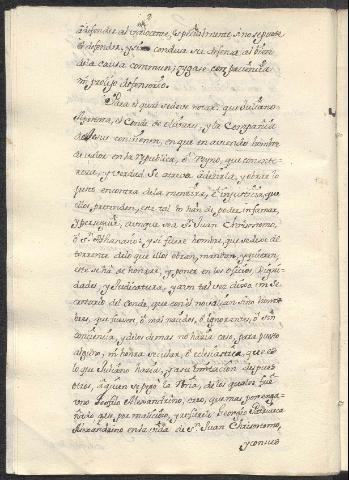 à defender al ygnocente, especialmente sino se puede
el defender, y si conduce su defensa al bien
de la causa commun; oygase con paciencia
mi prolijo defensorio.
Para el qual se deve notar: que Juliano
el Conde de olivares, y la Compañia
de Jesus convienen, en que en aviendo hombre
de valor en la republica, ò Reyno, que con ente-
reza, y verdad se atreva à dezirla, y obrar lo
justo encontra de la mentira, è injusticia, que
ellos pretenden, este tal lo han de poder infamar,
y perseguir, aunque sea Sn. Juan Chrisostomo,
ò Sn. Athanasio: y si fuere hombre, que se dexe de
torrente de lo que ellos obran, mandan, y quieren,
este se ha de honrar, y poner en los oficios, Digni-
dades, y Judicatura, y aun tal vez dixo un Se-
cretario del Conde, que con el no valian sino hom-
bres, que fuesen, ò mal nacidos, ò ignorentes, ò sin
conciencia, y de los demas no hacia caso, para puesto
alguno, ni honra secular, ò eclesiastica, que es
lo que Juliano hacia, y a su imitacion despues
otros, à quien se pegò la tiña, de los quales fue
uno Teofilo Alexandrino; creo, que mas por enga-
ñado que por malicioso, y refierelo Georgio Patriarca
Alexandrino en la vida de Sn. Juan Chrisostomo,
y como